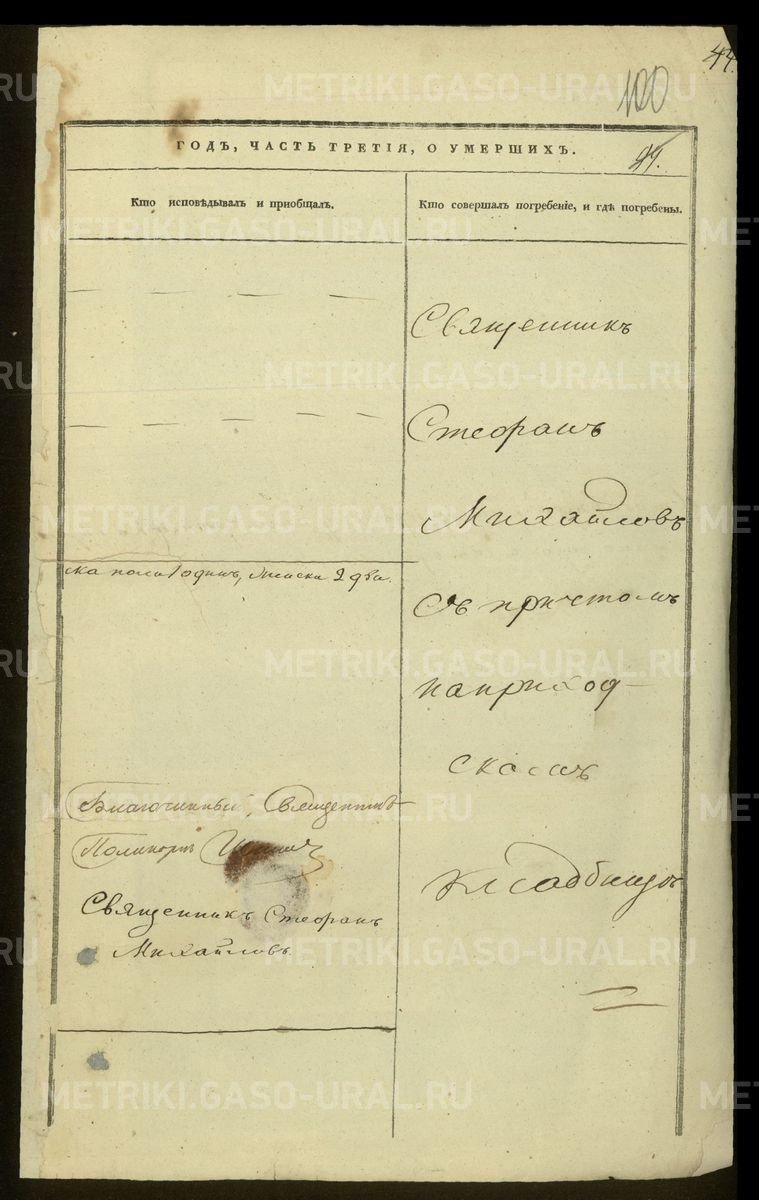 44.
100
ГОДЪ, ЧАСТЬ ТРЕТІЯ, О УМЕРШИХЪ.
Кто исповѣдывалъ и пріобщалъ.
Кто совершалъ погребеніе, и гдѣ погребены.
Священникъ
Стефанъ
Михайловъ
Съ причтомъ
на приход-
скомъ
кладбищѣ
ска пола 1 одинъ, женска 2 два.
Благочинный, Священникъ
Поликарпъ
Священникъ Стефанъ
Михайловъ.
METRIKI.GASO-URAL.RU